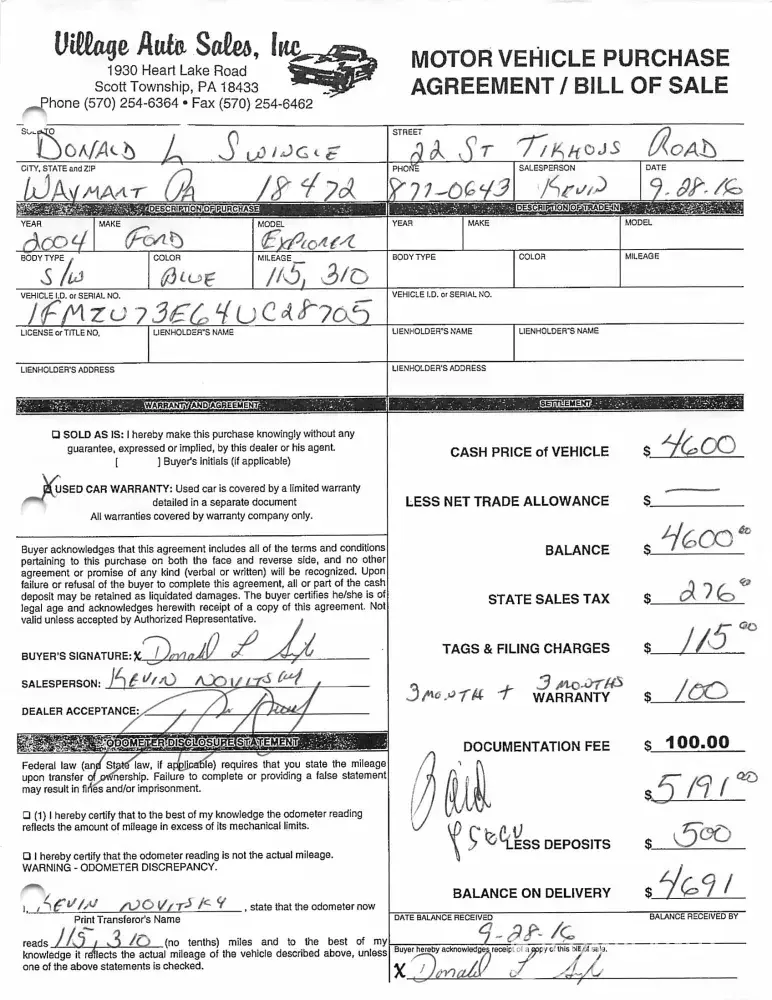 Village Auto Sales, Inc
1930 Heart Lake Road
Scott Township, PA 18433
Phone (570) 254-6364 • Fax (570) 254-6462
MOTOR VEHICLE PURCHASE
AGREEMENT / BILL OF SALE
TO
DONALD L SWINGLE
STREET
22 ST TIKHONS ROAD
CITY, STATE and ZIP
WAYMART PA 18472
PHONE
877-0643
SALESPERSON
KEVIN
DATE
9-28-16
DESCRIPTION OF PURCHASE
DESCRIPTION OF TRADE-IN
YEAR MAKE MODEL
2004 FORD EXPLORER
YEAR MAKE MODEL
BODY TYPE COLOR MILEAGE
S/W BLUE 115,310
BODY TYPE COLOR MILEAGE
VEHICLE I.D. or SERIAL NO.
1FMZU73E64UC28705
VEHICLE I.D. or SERIAL NO.
LICENSE or TITLE NO. LIENHOLDER'S NAME
LIENHOLDER'S NAME LIENHOLDER'S NAME
LIENHOLDER'S ADDRESS
LIENHOLDER'S ADDRESS
WARRANTY AND AGREEMENT
☐ SOLD AS IS: I hereby make this purchase knowingly without any
guarantee, expressed or implied, by this dealer or his agent.
[ ] Buyer's initials (if applicable)
X USED CAR WARRANTY: Used car is covered by a limited warranty
detailed in a separate document
All warranties covered by warranty company only.
Buyer acknowledges that this agreement includes all of the terms and conditions
pertaining to this purchase on both the face and reverse side, and no other
agreement or promise of any kind (verbal or written) will be recognized. Upon
failure or refusal of the buyer to complete this agreement, all or part of the cash
deposit may be retained as liquidated damages. The buyer certifies he/she is of
legal age and acknowledges herewith receipt of a copy of this agreement. Not
valid unless accepted by Authorized Representative.
BUYER'S SIGNATURE: X Donald L
SALESPERSON: KEVIN NOVITSKY
DEALER ACCEPTANCE:
ODOMETER DISCLOSURE STATEMENT
Federal law (and State law, if applicable) requires that you state the mileage
upon transfer of ownership. Failure to complete or providing a false statement
may result in fines and/or imprisonment.
☐ (1) I hereby certify that to the best of my knowledge the odometer reading
reflects the amount of mileage in excess of its mechanical limits.
☐ I hereby certify that the odometer reading is not the actual mileage.
WARNING - ODOMETER DISCREPANCY.
I, KEVIN NOVITSKY , state that the odometer now
Print Transferor's Name
reads 115,310 (no tenths) miles and to the best of my
knowledge it reflects the actual mileage of the vehicle described above, unless
one of the above statements is checked.
SETTLEMENT
CASH PRICE of VEHICLE $ 4600
LESS NET TRADE ALLOWANCE $ —
BALANCE $ 4600 00
STATE SALES TAX $ 276 00
TAGS & FILING CHARGES $ 115 00
3 MONTH + 3 MONTHS
WARRANTY $ 100
DOCUMENTATION FEE $ 100.00
Paid
$ 5191 00
LESS DEPOSITS $ 500
BALANCE ON DELIVERY $ 4691
DATE BALANCE RECEIVED BALANCE RECEIVED BY
9-28-16
Buyer hereby acknowledges receipt of a copy of this bill of sale.
X Donald L